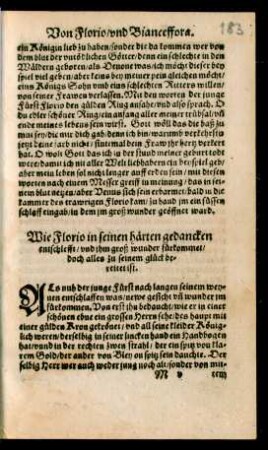 Von Florio/vnd Bianceffora.
183
ein Königin lieb zu haben/sonder die da kommen wer von
dem blut der vntödtlichen Götter/denn ein schlechte in den
Wäldern geboren/als Oenone was/ich möcht dieser bey
spiel vil geben/aber keins bey meiner pein gleichen möcht/
eins Königs Sohn vmb eins schlechten Ritters willen/
von seiner Frawen verlassen. Mit den worten der junge
Fürst Florio den gülden Ring ansahe/vnd also sprach. O
du edler schöner Ring/ein anfang aller meiner trübsal/vñ
end meines lebens sein wirst. Gott wöll das die baß zu
mut sey/die mir dich gab/denn ich bin/warumb verkehrstu
jetz deine farb nit/ sintemal dein Fraw jhr hertz verkert
hat. O wolt Gott das ich in der stund meiner geburt todt
were/damit ich nit aller Welt liebhabern ein beyspiel geb/
aber mein leben sol nicht lenger auff erden sein/mit diesen
worten nach einem Messer greiff in meinung/das in sei-
nem blut netzen/aber Venus sich sein erbarmet/bald in die
kammer des trawrigen Florio kam/zu hand jm ein süssen
schlaff eingab/in dem jm groß wunder geöffnet ward.
Wie Florio in seinen harten gedancken
entschlefft/vnd jhm groß wunder fürkommet/
doch alles zu seinem glück be-
reitet ist.
ALs nuh der junge Fürst nach langen seinem wey-
nen entschlaffen was/newe gesicht vñ wunder jm
fürkommen. Von erst jhn bedaucht/wie er in einer
schönen ebne ein grossen Herrn sehe/des haupt mit
einer gülden Kron gekrönet/vnd all seine kleider König-
lich weren/derselbig in seiner lincken hand ein Handbogen
hat/vnd in der rechten zwen strahl/ der ein spitz von klä-
rem Gold/der ander von Bley on spitz sein dauchte. Der
selbig Herr wer auch weder jung noch alt/sonder von mit-
M v